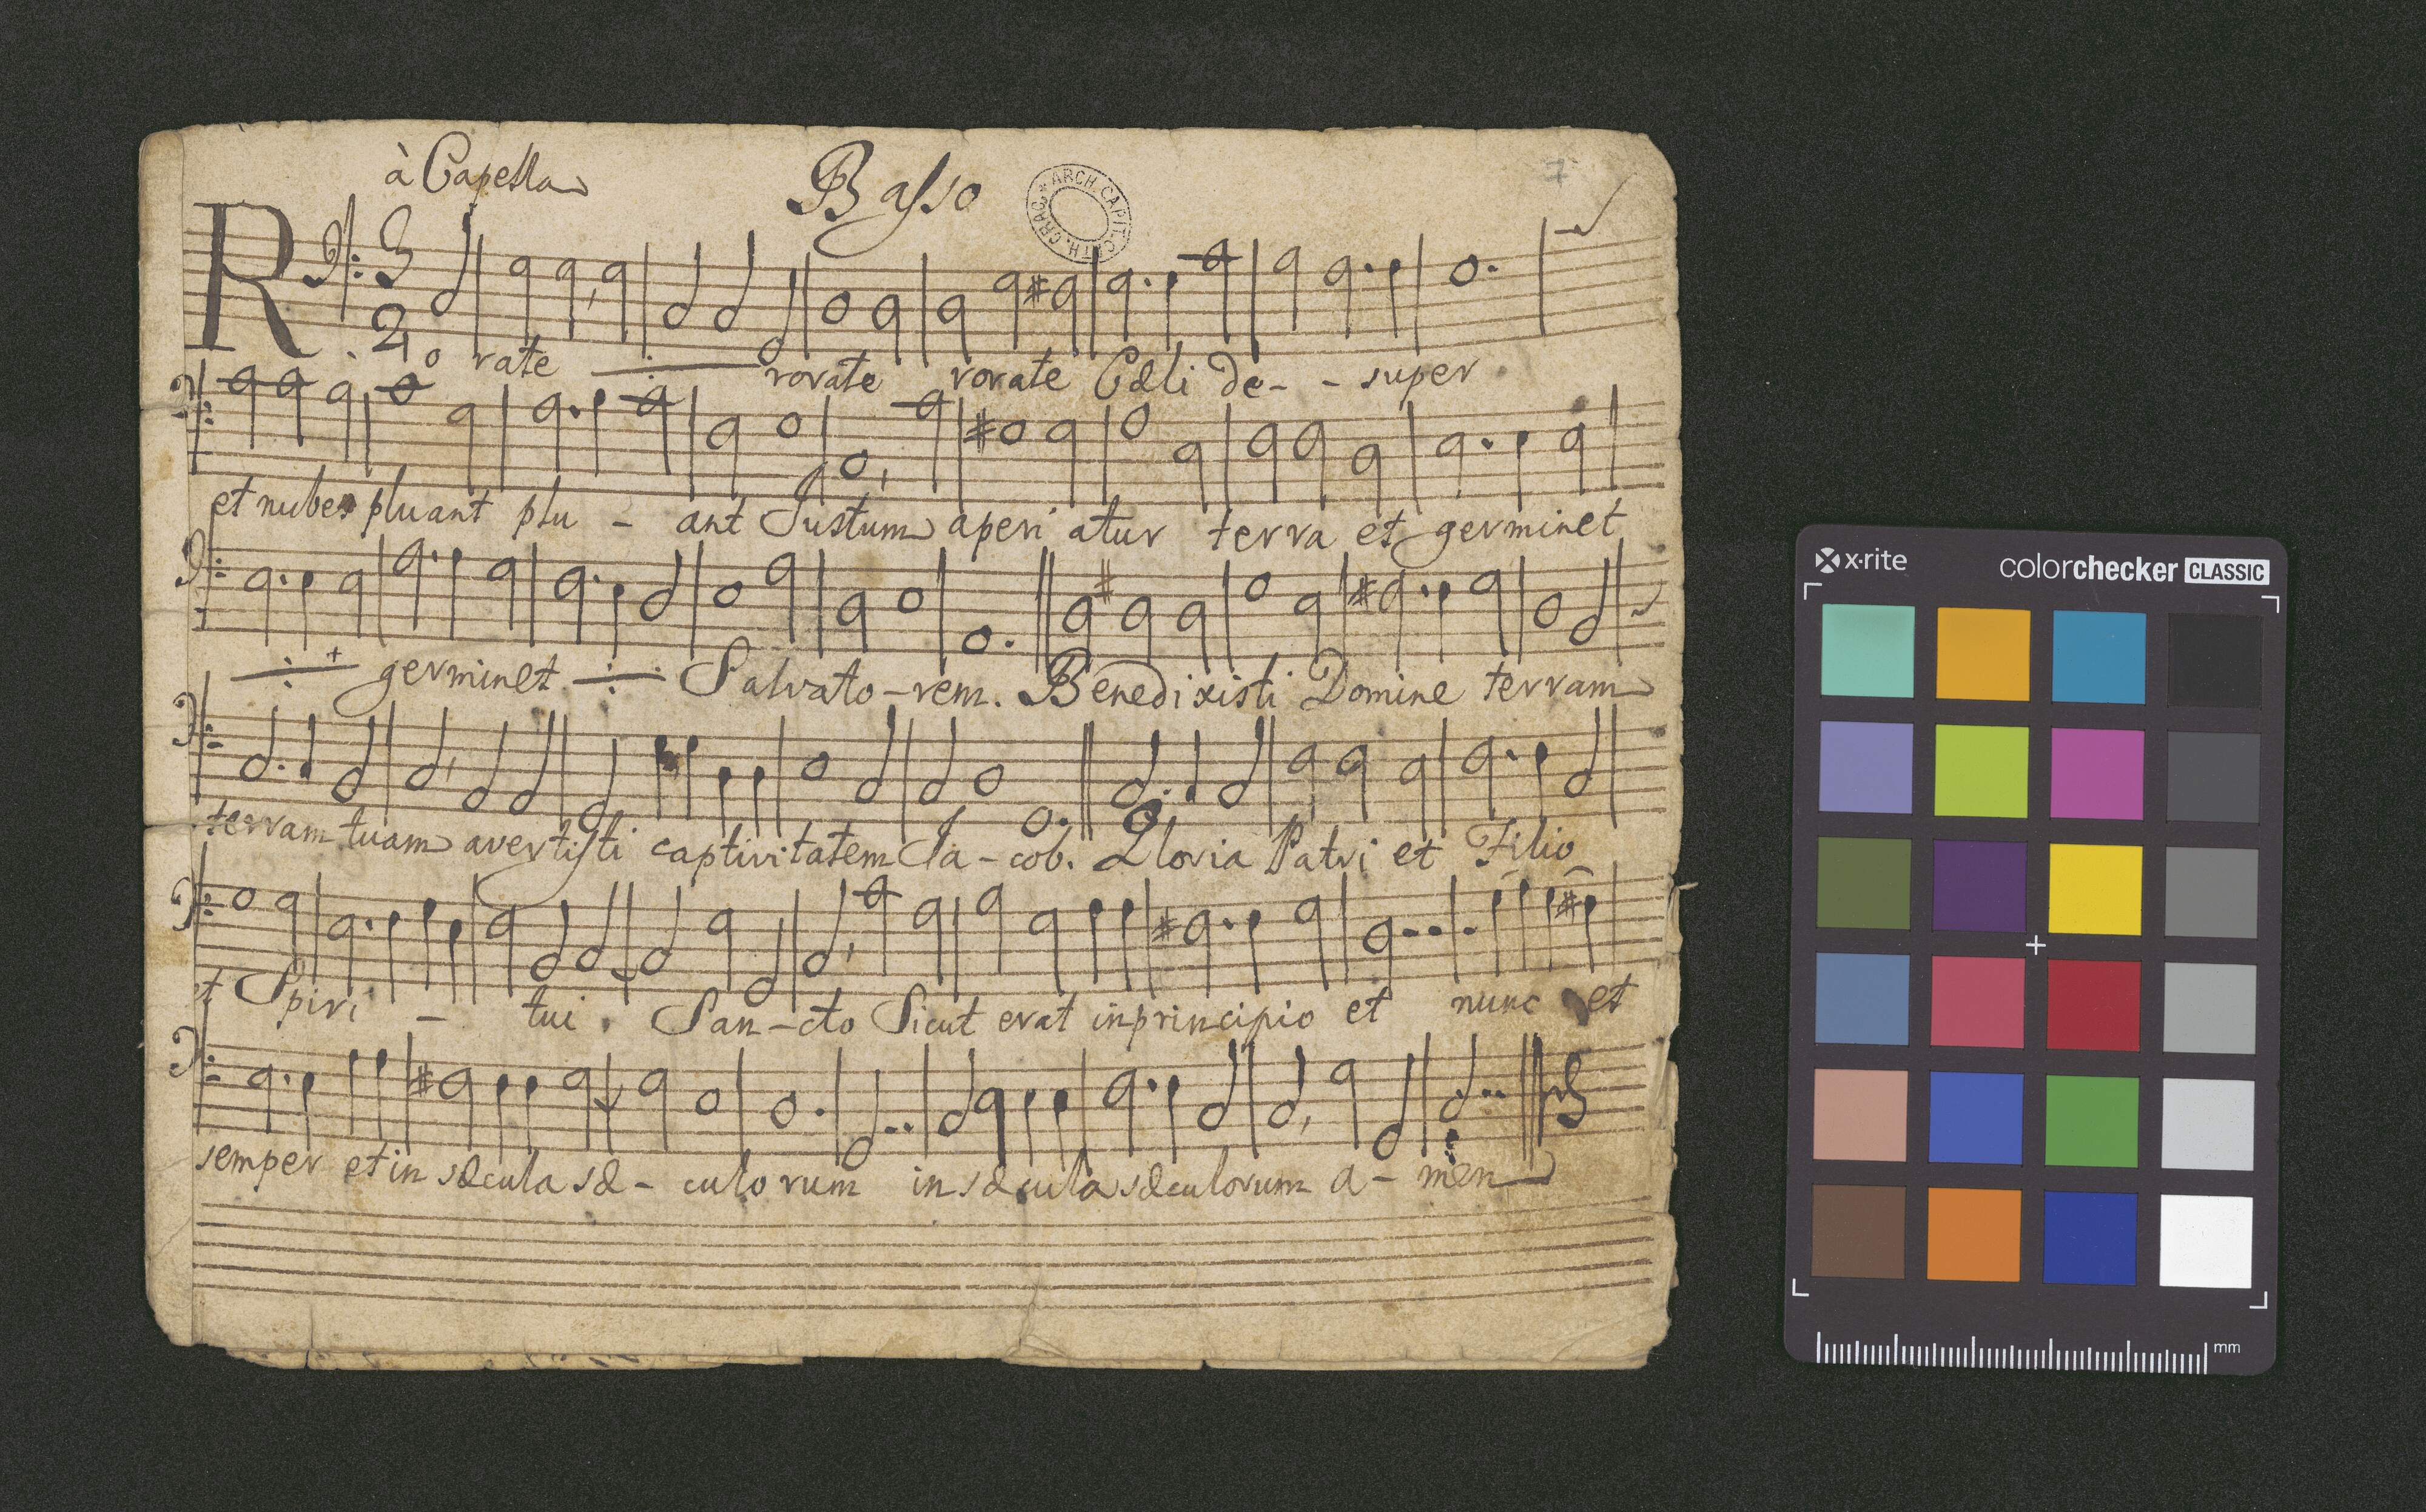 à Capella
Basso
ARCH. CAPIT. CATH. CRAC.
7
3
2
Ro rate rorate rorate Cæli de- - super
et nubes pluant plu - ant Justum aperi atur terra et germinet
germinet Salvato-rem. Benedixisti Domine terram
terram tuam avertisti captivitatem Ja-cob. Gloria Patri et Filio
et Spiri - tui. San-cto Sicut erat in principio et nunc et
semper et in sæcula sæ- culo rum in sæcula sæculorum a- men
x·rite
colorchecker CLASSIC
mm